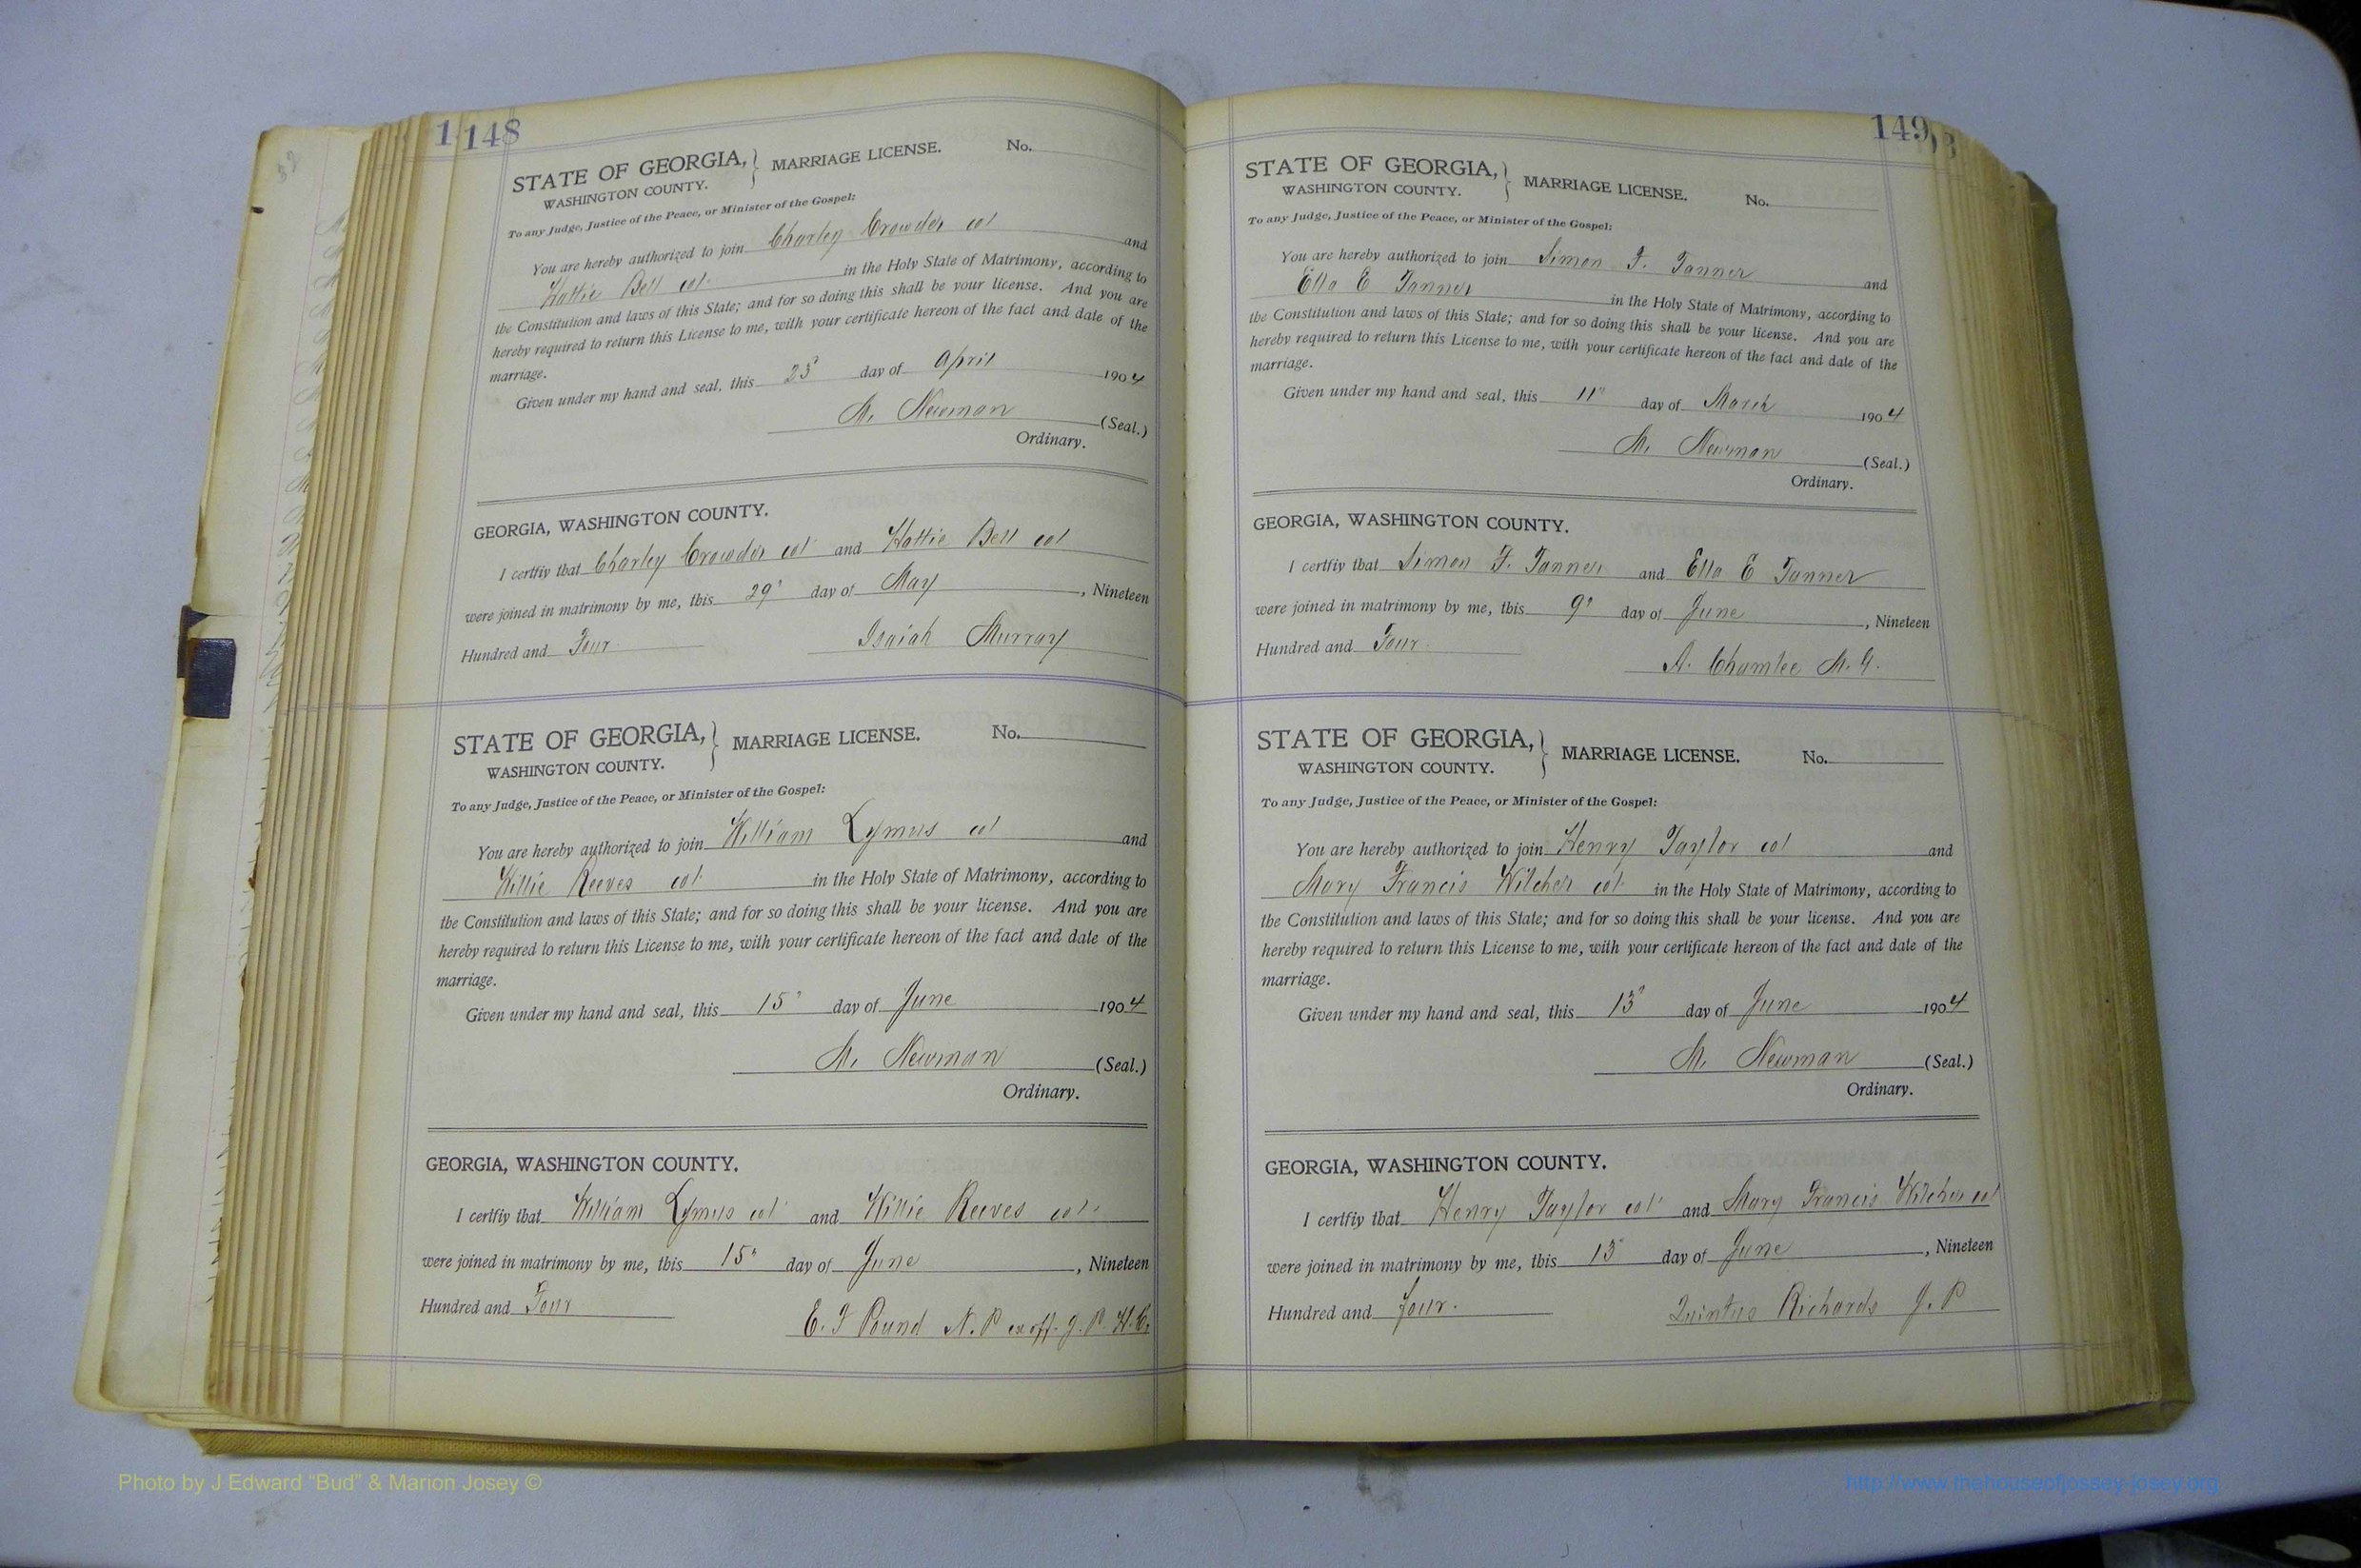 148
STATE OF GEORGIA, } MARRIAGE LICENSE. No.
WASHINGTON COUNTY.
To any Judge, Justice of the Peace, or Minister of the Gospel:
You are hereby authorized to join Charley Crowder col and
Hattie Bell col. in the Holy State of Matrimony, according to
the Constitution and laws of this State; and for so doing this shall be your license. And you are
hereby required to return this License to me, with your certificate hereon of the fact and date of the
marriage.
Given under my hand and seal, this day of April 1904
M. Newman (Seal.)
Ordinary.
GEORGIA, WASHINGTON COUNTY.
I certfiy that Charley Crowder col and Hattie Bell col
were joined in matrimony by me, this 29" day of May , Nineteen
Hundred and Four
Isaiah Murray
STATE OF GEORGIA, } MARRIAGE LICENSE. No.
WASHINGTON COUNTY.
To any Judge, Justice of the Peace, or Minister of the Gospel:
You are hereby authorized to join William Lymus col and
Willie Reeves col. in the Holy State of Matrimony, according to
the Constitution and laws of this State; and for so doing this shall be your license. And you are
hereby required to return this License to me, with your certificate hereon of the fact and date of the
marriage.
Given under my hand and seal, this 15" day of June 1904
M. Newman (Seal.)
Ordinary.
GEORGIA, WASHINGTON COUNTY.
I certfiy that William Lymus col and Willie Reeves col.
were joined in matrimony by me, this 15" day of June , Nineteen
Hundred and Four
E. J Pound N. P ex off. J. P.
149
STATE OF GEORGIA, } MARRIAGE LICENSE. No.
WASHINGTON COUNTY.
To any Judge, Justice of the Peace, or Minister of the Gospel:
You are hereby authorized to join Simon F. Tanner and
Ella E Tanner in the Holy State of Matrimony, according to
the Constitution and laws of this State; and for so doing this shall be your license. And you are
hereby required to return this License to me, with your certificate hereon of the fact and date of the
marriage.
Given under my hand and seal, this 11" day of March 1904
M. Newman (Seal.)
Ordinary.
GEORGIA, WASHINGTON COUNTY.
I certfiy that Simon F. Tanner and Ella E Tanner
were joined in matrimony by me, this 9" day of June , Nineteen
Hundred and Four.
A. Chamlee M. G.
STATE OF GEORGIA, } MARRIAGE LICENSE. No.
WASHINGTON COUNTY.
To any Judge, Justice of the Peace, or Minister of the Gospel:
You are hereby authorized to join Henry Taylor col and
Mary Francis Wilcher col. in the Holy State of Matrimony, according to
the Constitution and laws of this State; and for so doing this shall be your license. And you are
hereby required to return this License to me, with your certificate hereon of the fact and date of the
marriage.
Given under my hand and seal, this 13" day of June 1904
M. Newman (Seal.)
Ordinary.
GEORGIA, WASHINGTON COUNTY.
I certfiy that Henry Taylor col and Mary Francis Wilcher col
were joined in matrimony by me, this 13" day of June , Nineteen
Hundred and four.
Quintus Richards J. P
Photo by J Edward “Bud” & Marion Josey ©
http://www.thehouseofjossey-josey.org